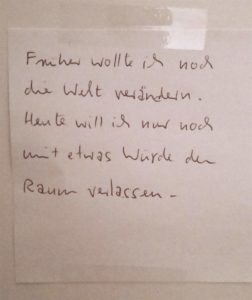 Früher wollte ich noch
die Welt verändern.
Heute will ich nur noch
mit etwas Würde den
Raum verlassen.